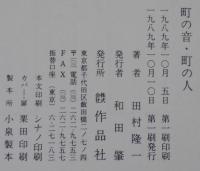 町の音・町の人
一九八九年一〇月 五日 第一刷印刷
一九八九年一〇月一〇日 第一刷発行
著者 田村隆一
発行者 和田肇
発行所 作品社
東京都千代田区飯田橋二ノ七ノ四
電話 (03) 二六二-九七五三
FAX (03) 二六二-九七五七
振替口座 (東京) 六-二七一八三
本文印刷 シナノ印刷
カバー・扉 栗田印刷
製本所 小泉製本